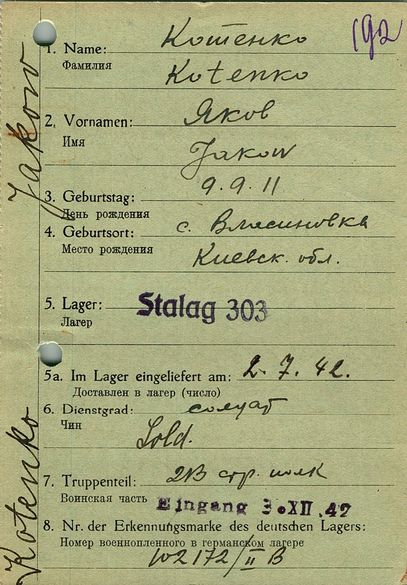 192
1. Name: Котенко
Фамилия
Kotenko
2. Vornamen: Яков
Имя
Jakow
3. Geburtstag: 9.9.11
День рождения
4. Geburtsort: с. Власиновка
Место рождения Киевск. обл.
5. Lager: Stalag 303
Лагер
5a. Im Lager eingeliefert am: 2. 7. 42.
Доставлен в лагер (число)
6. Dienstgrad: солдат
Чин
Sold.
7. Truppenteil: стр. полк
Воинская часть Eingang 3. XII. 42
8. Nr. der Erkennungsmarke des deutschen Lagers:
Номер военнопленного в германском лагере
102172/II B
Kotenko Jakow